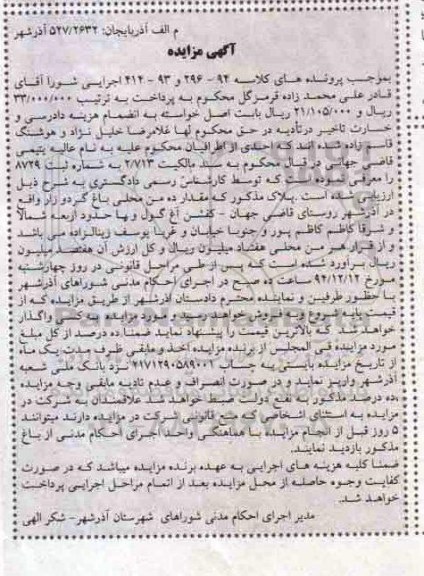 م الف آذربایجان: ۵۲۷/۲۶۳۲ آذرشهر
آگهی مزایده
بموجب پرونده های کلاسه ۹۴ - ۲۹۶ و ۹۳ - ۴۱۲ اجرایی شورا آقای
قادر علی محمد زاده قرمزگل محکوم به پرداخت به ترتیب ۳۳/۰۰۰/۰۰۰
ریال و ۲۱/۱۰۵/۰۰۰ ریال بابت اصل خواسته به انضمام هزینه دادرسی و
خسارت تاخیر در تأدیه در حق محکوم لها غلامرضا خلیل نژاد و هوشنگ
زاده شده اند که احدی از اطرافیان محکوم علیه به نام عالیه یتیمی
قاضی جهانی در قبال محکوم به سند مالکیت ۲/۷۱۳ به شماره ثبت ۸۷۲۹
را معرفی نموده اند که توسط کارشناس رسمی دادگستری به شرح ذیل
ارزیابی شده است. پلاک مذکور که مقدار ده من محلی باغ گردو زار واقع
در آذرشهر روستای قاضی جهان - کفش آغ گول و با حدود اربعه شمالا
و شرقا کاظم کاظم پور و جنوبا خیابان و غربا یوسف زینالزاده می باشد
و از قرار هر من محلی هفتاد میلیون ریال و کل ارزش آن هفتصد میلیون
ریال برآورد شده است که پس از طی مراحل قانونی در روز چهارشنبه
مورخ ۹۴/۱۲/۱۲ ساعت ده صبح در اجرای احکام مدنی شوراهای آذرشهر
با حضور طرفین و نماینده محترم دادستان آذرشهر از طریق مزایده که از
قیمت پایه شروع به فروش خواهد رسید و مورد مزایده به کسی واگذار
خواهد شد که بالاترین قیمت را پیشنهاد نماید ضمنا ده درصد از کل مبلغ
مورد مزایده فی المجلس از برنده مزایده اخذ و مابقی ظرف مدت یک ماه
از تاریخ مزایده بایستی به حساب ۲۱۷۱۲۹۰۵۸۹۰۰۱ نزد بانک ملی شعبه
آذرشهر واریز نماید و در صورت انصراف و عدم تادیه مابقی وجه مزایده
ده درصد مذکور به نفع دولت ضبط خواهد شد علاقمندان به شرکت در
مزایده به استثنای اشخاصی که منع قانونی شرکت در مزایده دارند میتوانند
۵ روز قبل از انجام مزایده با هماهنگی واحد اجرای احکام مدنی از باغ
مذکور بازدید نمایند.
ضمنا کلیه هزینه های اجرایی به عهده برنده مزایده میباشد که در صورت
کفایت وجوه حاصله از محل مزایده بعد از اتمام مراحل اجرایی پرداخت
خواهد شد.
مدیر اجرای احکام مدنی شوراهای شهرستان آذرشهر- شکر الهی